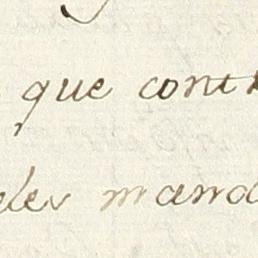 que cont
les mand